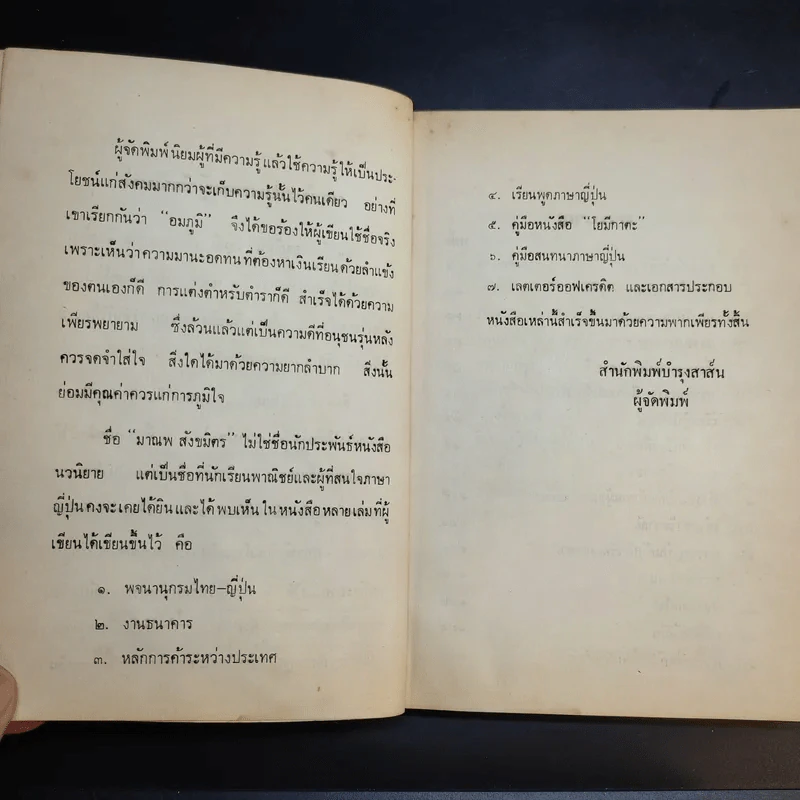 ผู้จัดพิมพ์นิยมผู้ที่มีความรู้ แล้วใช้ความรู้ให้เป็นประ-
โยชน์แก่สังคมมากกว่าจะเก็บความรู้นั้นไว้คนเดียว อย่างที่
เขาเรียกกันว่า "อมภูมิ" จึงได้ขอร้องให้ผู้เขียนใช้ชื่อจริง
เพราะเห็นว่าความมานะอดทน ที่ต้องหาเงินเรียนด้วยลำแข้ง
ของตนเองก็ดี การแต่งตำหรับตำราก็ดี สำเร็จได้ด้วยความ
เพียรพยายาม ซึ่งล้วนแล้วแต่เป็นความดีที่อนุชนรุ่นหลัง
ควรจดจำใส่ใจ สิ่งใดได้มาด้วยความยากลำบาก สิ่งนั้น
ย่อมมีคุณค่าควรแก่การภูมิใจ
ชื่อ "มาณพ สังขมิตร" ไม่ใช่ชื่อนักประพันธ์หนังสือ
นวนิยาย แต่เป็นชื่อที่นักเรียนพาณิชย์และผู้ที่สนใจภาษา
ญี่ปุ่นคงจะเคยได้ยิน และได้ พบเห็น ใน หนังสือ หลาย เล่ม ที่ผู้
เขียนได้เขียนขึ้นไว้ คือ
๑. พจนานุกรมไทย–ญี่ปุ่น
๒. งานธนาคาร
๓. หลักการค้าระหว่างประเทศ
๔. เรียนพูดภาษาญี่ปุ่น
๕. คู่มือหนังสือ "โยมีกาตะ"
๖. คู่มือสนทนาภาษาญี่ปุ่น
๗. เลตเตอร์ออฟเครดิต และเอกสารประกอบ
หนังสือเหล่านี้สำเร็จขึ้นมาด้วยความพากเพียรทั้งสิ้น
สำนักพิมพ์บำรุงสาส์น
ผู้จัดพิมพ์